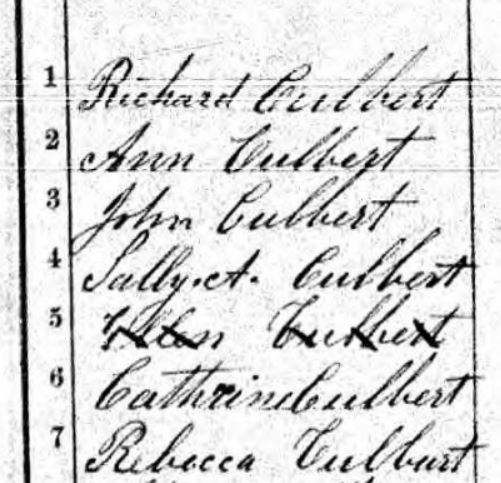 1 Richard Culbert
2 Ann Culbert
3 John Culbert
4 Sally. A. Culbert
5 Ellen Culbert
6 Cathrine Culbert
7 Rebecca Culburt